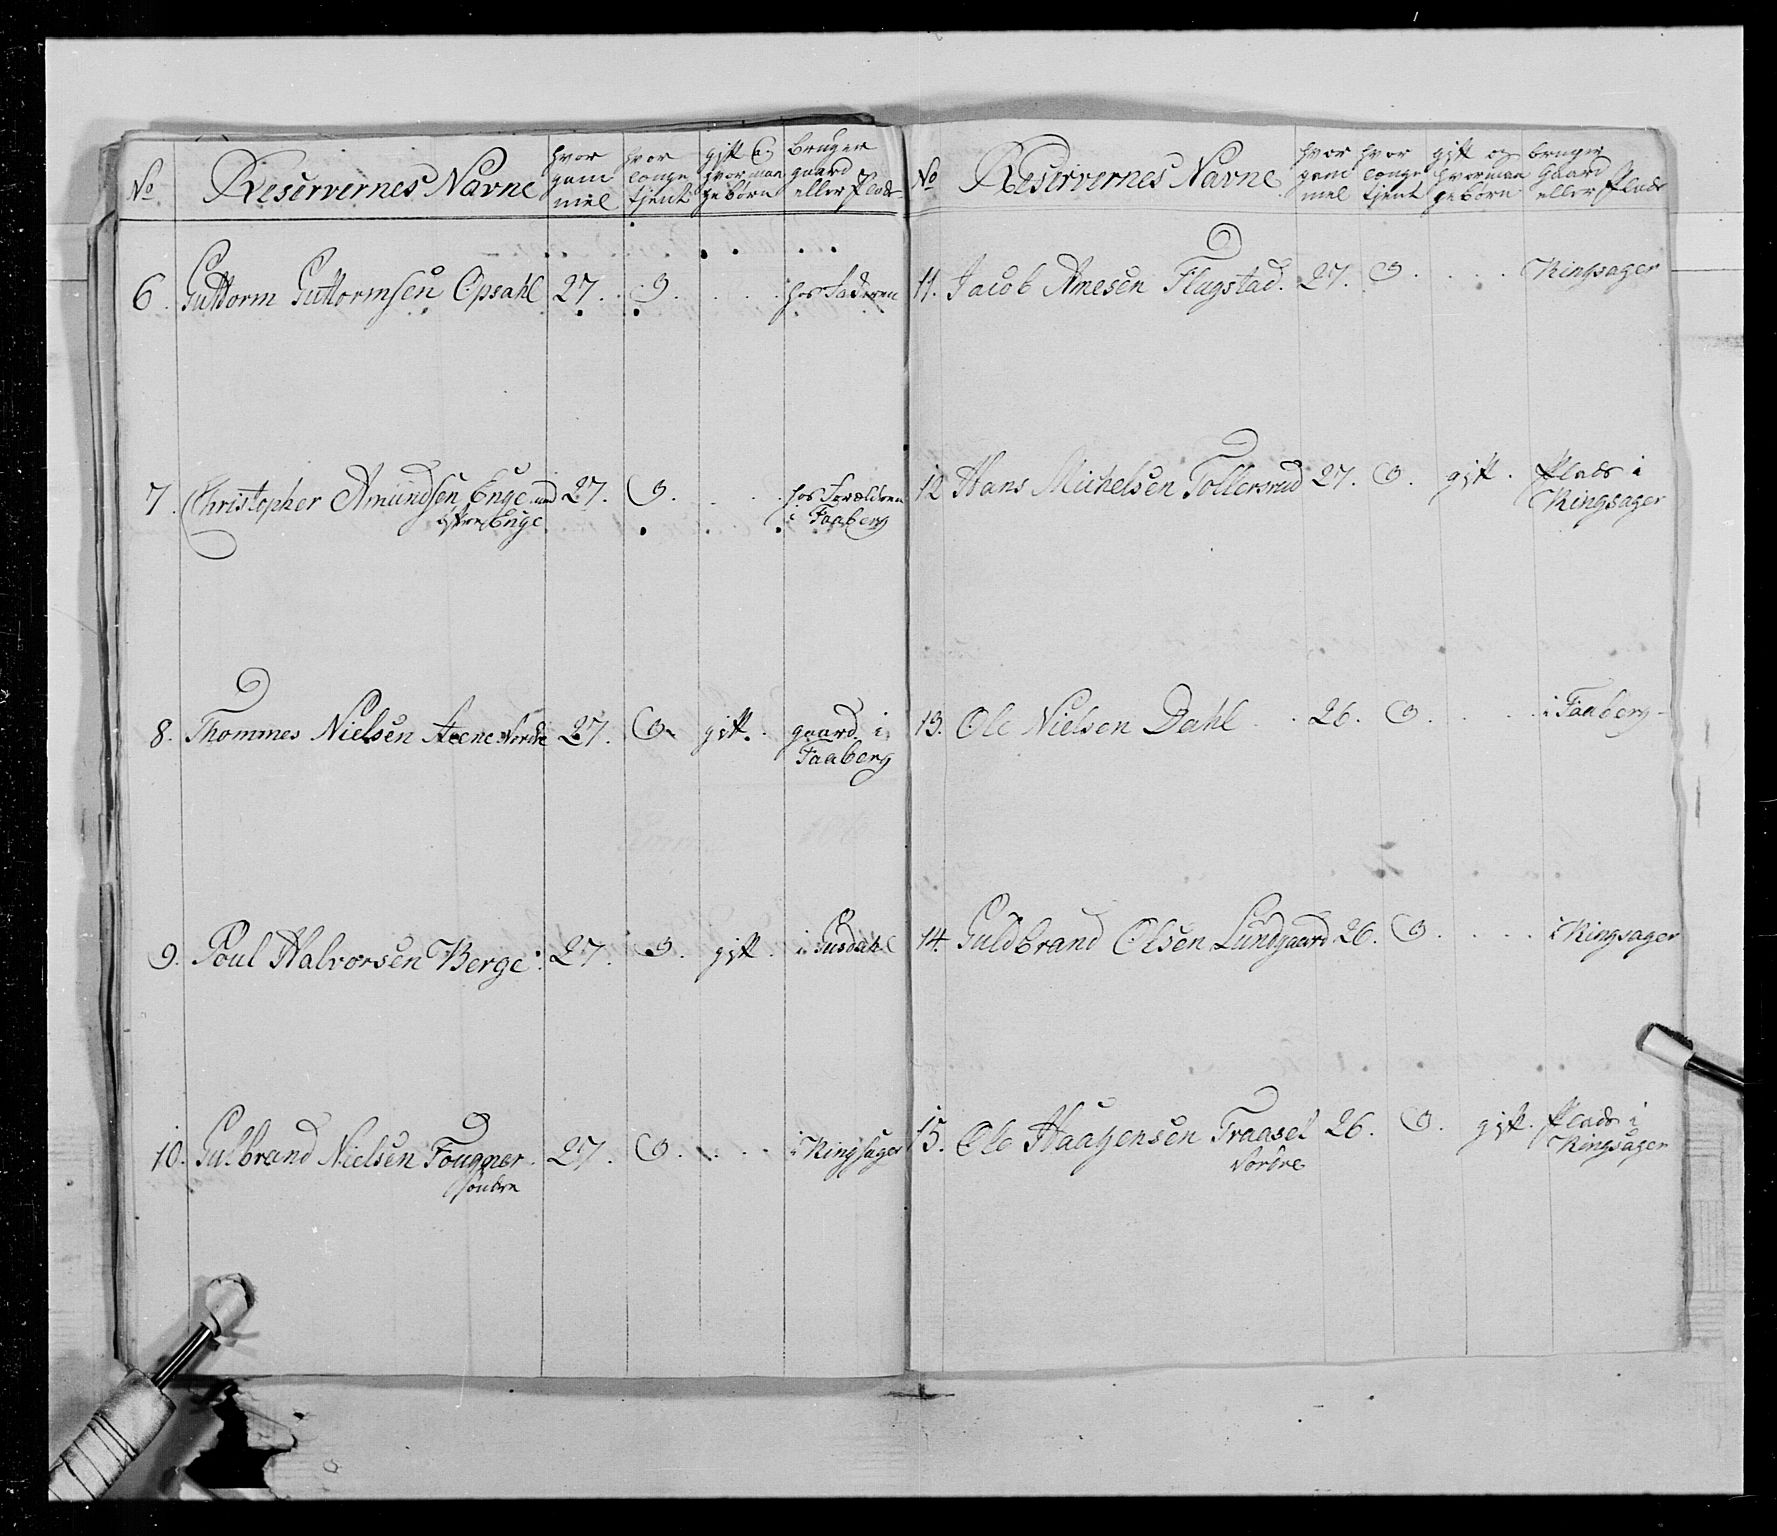 No Reservernes Navne hvor gammel hvor længe tjent gift og hvor man geb̃ørn bruger gaard eller Plads
6. Guttorm Guttormsen Opsahl 27. 9. hos Faderen
7. Christopher Amundsen Enge 27. 9. hos Forældren
Enge i Faaberg
8. Thommes Nielsen Nordre 27. 9. gift. gaard i
Faaberg
9. Poul Halvorsen Berge 27. 9. gift. i Gusdahl
10. Gulbrand Nielsen Fougner 27. 9. i Ringsager
søndre
No Reservernes Navne hvor gammel hvor længe tjent gift og hvor man gebørn bruger Gaard eller Plads
11. Jacob Arnesen Flagstad. 27. 9. Ringsager
12 Hans Michelsen Tollersrud 27. 9. gift. Plads i
Ringsager
13. Ole Nielsen Dahl 26. 9. i Faaberg
14. Guldbrand Olsen Lundgaard 26. 9. i Ringsager
15. Ole Haagensen Fraasel 26. 9. gift. Plads i
Nordre Ringsager